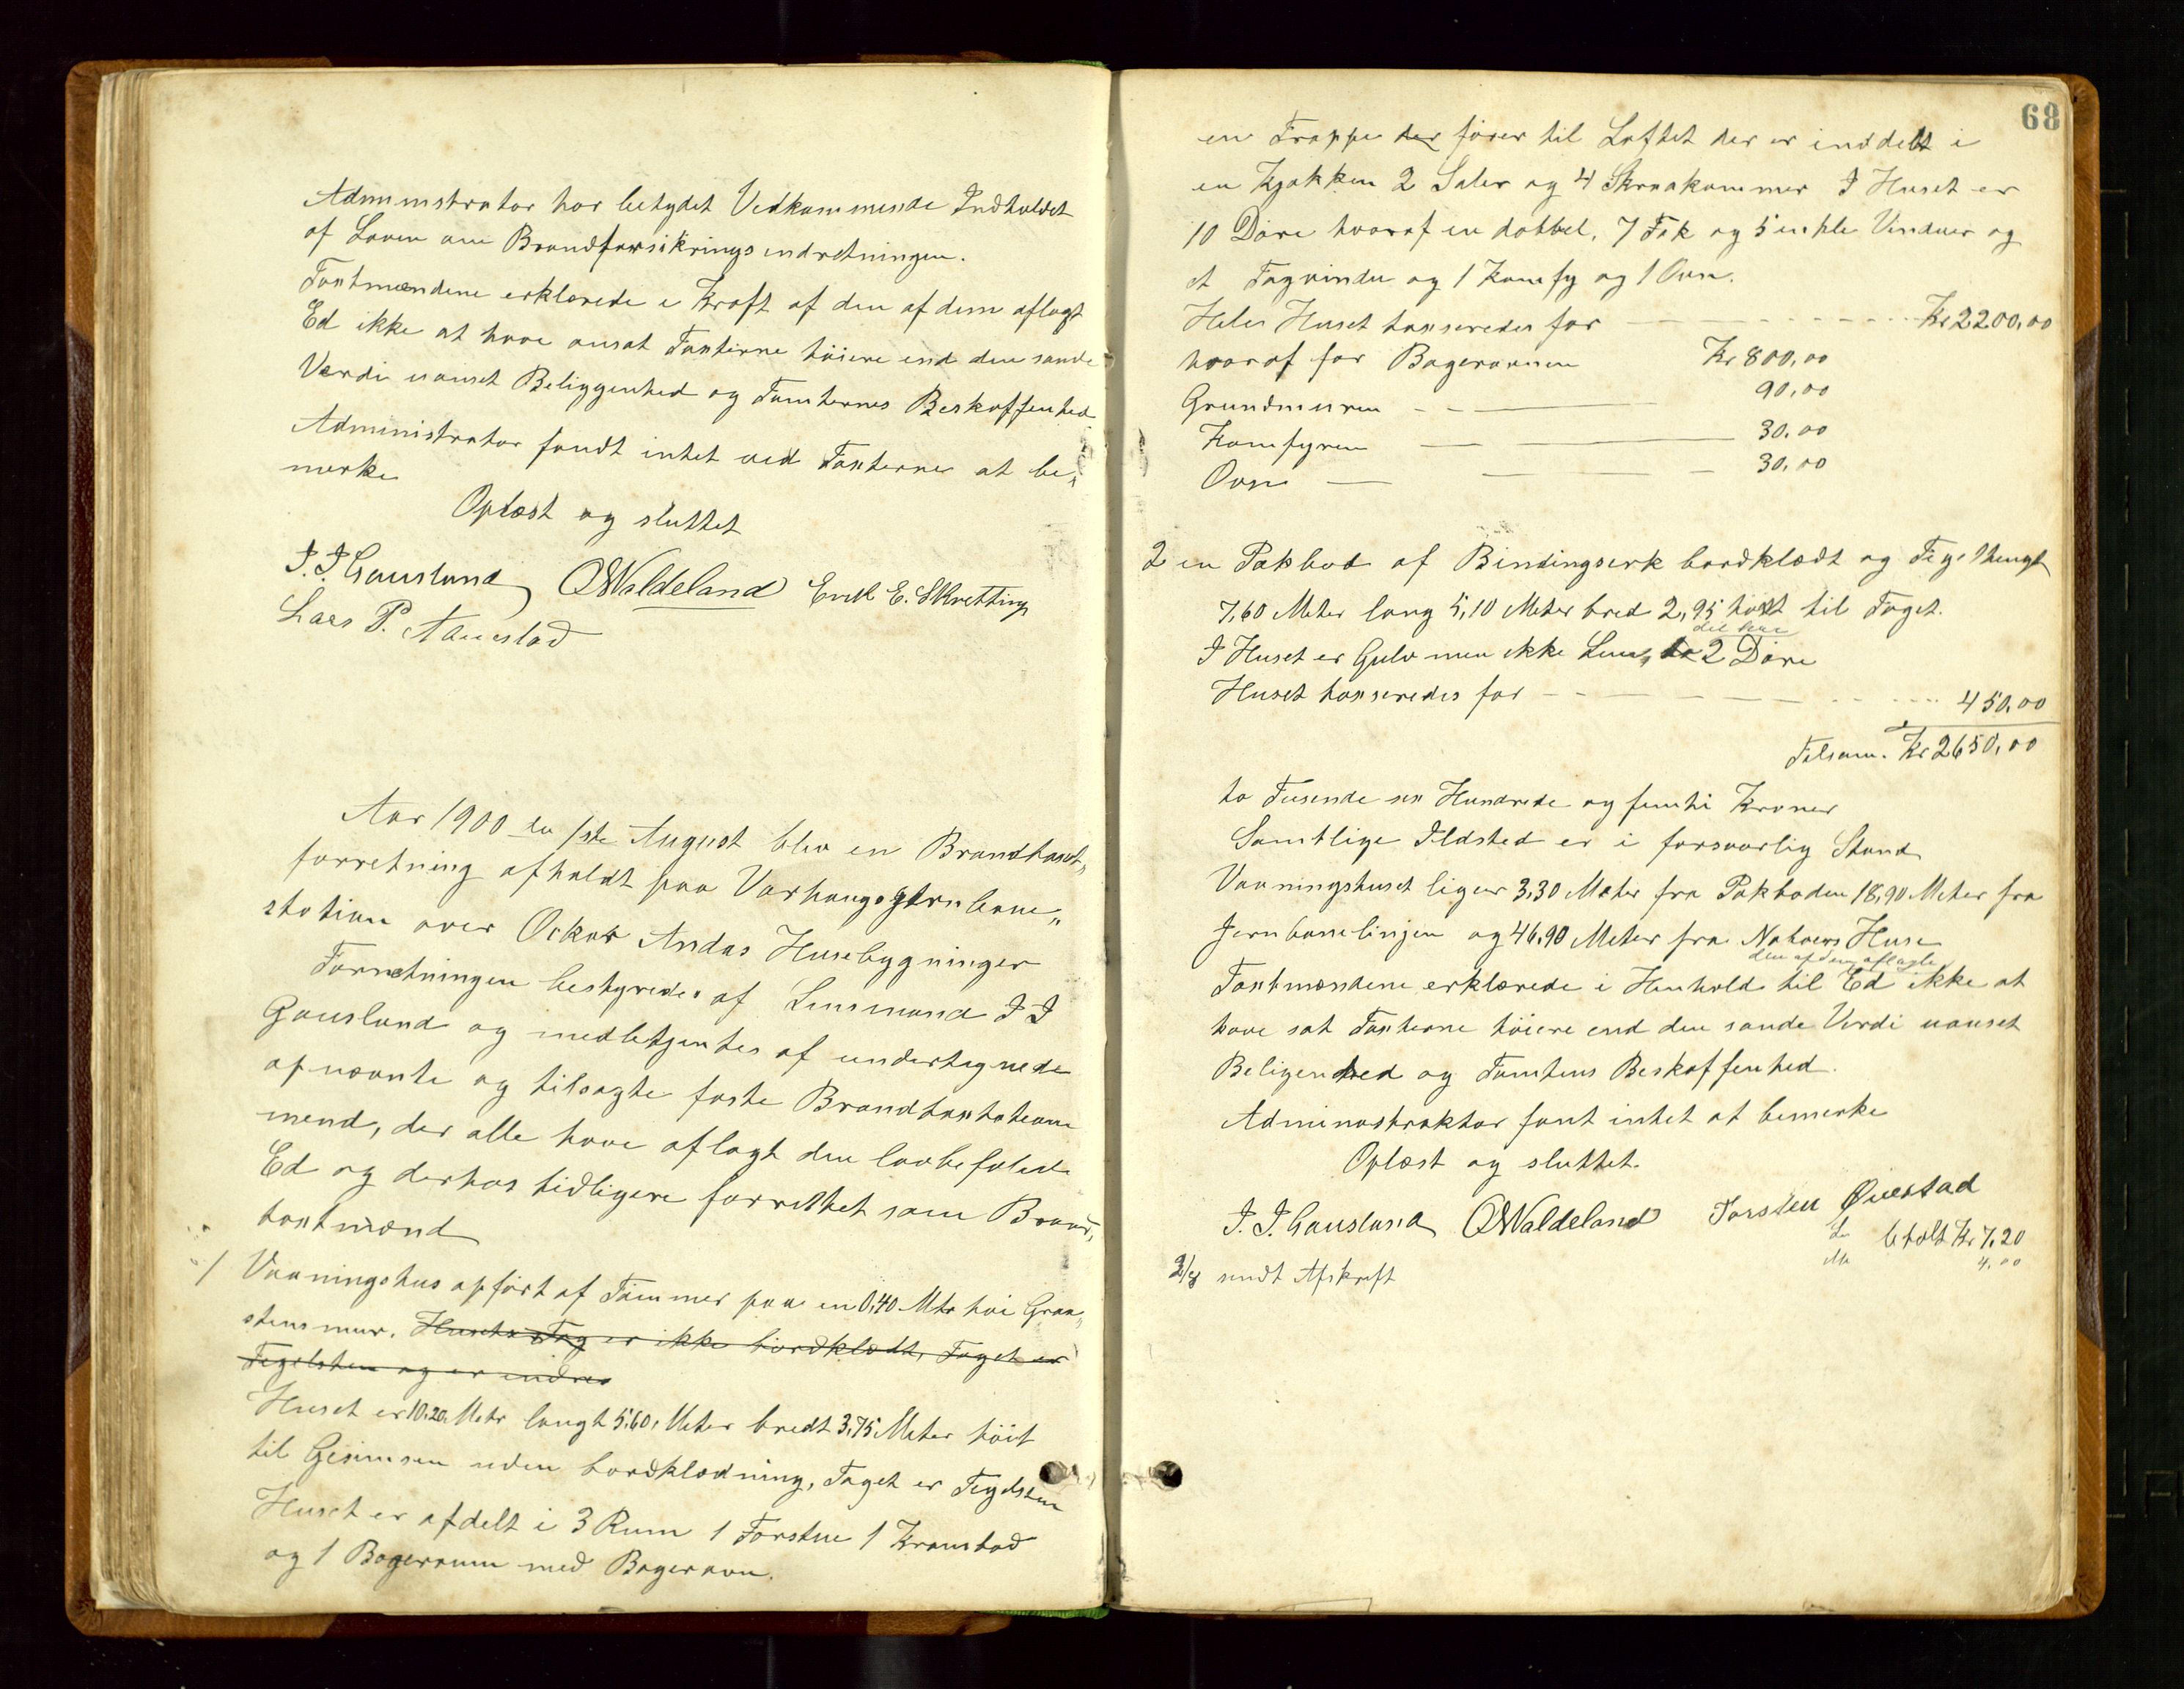 Administrator har betydet Vedkommende Indholdet
af Loven om Brandforsikringsindretningen.
Taxtmændene erklærede i Kraft af den af dem aflagt
Ed ikke at have ansat Taxterne høiere end den sande
Værdi uanset Beliggenhed og Tomternes Beskaffenhed
Administrator fandt intet ved Taxterne at be„
merke
Oplæst og sluttet
J. J. Gausland OWaldeland Erik E. Skretting
Lars P. Aanestad
Aar 1900 den 1ste August blev en Brandtaxt„
forretning afholdt paa Varhaugs Jernbane„
station over Oskar Andas Husebygninger
Forretningen bestyredes af Lensmand J J
Gausland og medbetjentes af undertegnede
opnævnte og tilsagte faste Brandtaxtations
mænd, der alle have aflagt den lovbefalede
Ed og derhos tidligere forrettet som Brand„
taxtmænd
1 Vaaningshus opført af Tømmer paa en 0,40 Mtr høi Graa„
stensmur. Husets Tag er ikke bordklædt, Taget er
Tegelsten og er indre
Huset er 10,20 Metr langt 5,60, Meter bredt 3,75 Meter høit
til Gesimsen uden bordklædning, Taget er Tegelsten
Huset er afdelt i 3 Rum 1 Forstue 1 Krambod
og 1 Bagerrum med Bagerovn.
68
en Trappe der fører til Loftet der er inddelt i
en Kjøkken 2 Saler og 4 Skraakammer I Huset er
10 Døre hvoraf en dobbel, 7 Fak og 5 enkle Vinduer og
et Tagvindu og 1 Komfy og 1 Ovn.
Heles Huset taxseredes for Kr 2200,00
hvoraf for Bagerovnen Kr 800,00
Grundmuren 90,00
Komfyren 30,00
Ovn 30,00
2 en Pakbod af Bindingserk bordklædt og Tegelhengt
7,60 Meter lang 5,10 Meter bred 2,95 høit til Taget.
I Huset er Gulv men ikke Lem, 2 Døre
Huset taxseredes for 450,00
Talsum. Kr 2650,00
to Tusende sex Hundrede og femti Kroner
Samtlige Ildsted er i forsvarlig Stand
Vaaningshuset liger 3,30 Meter fra Pakboden 18,90 Meter fra
Jernbanelinjen og 46,90 Meter fra Naboens Huse
den af dem aflagte
Taxtmændene erklærede i Henhold til Ed ikke at
have sat Taxterne høiere end den sande Verdi uanset
Beligenhed og Tomtens Beskaffenhed.
Adminastraktor fant intet at bemerke
Oplæst og sluttet.
J. J. Gausland OWaldeland Torsten Øvestad
betalt Kr 7,20
4,00
2/8 sendt Afskrift